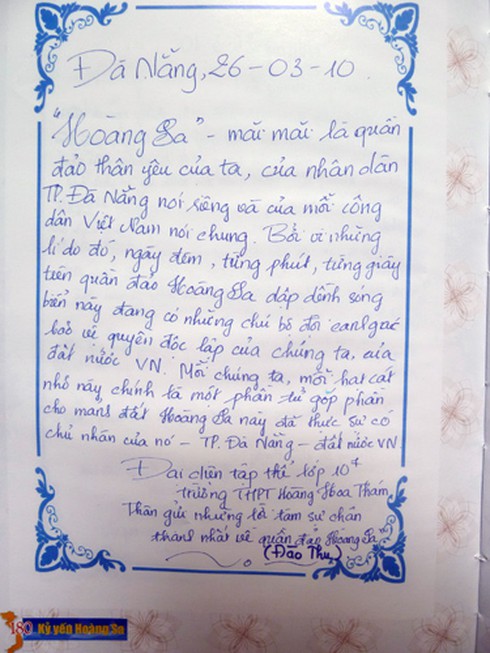 Đà Nẵng, 26-03-10.
"Hoàng Sa" - mãi mãi là quần
đảo thân yêu của ta, của nhân dân
TP. Đà Nẵng nói riêng và của mỗi công
dân Việt Nam nói chung. Bởi vì những
lí do đó, ngày đêm, từng phút, từng giây
trên quần đảo Hoàng Sa dập dềnh sóng
biển này đang có những chú bộ đội canh gác
bảo vệ quyền độc lập của chúng ta, của
đất nước VN. Mỗi chúng ta, mỗi hạt cát
nhỏ này chính là một phần tử góp phần
cho mảnh đất Hoàng Sa này đã thực sự có
chủ nhân của nó - TP. Đà Nẵng - đất nước VN
Đại diện tập thể lớp 10
trường THPT Hoàng Hoa Thám
Thân gửi những lời tâm sự chân
thành nhất về quần đảo "Hoàng Sa"
(Đào Thu)
180 Kỷ yếu Hoàng Sa